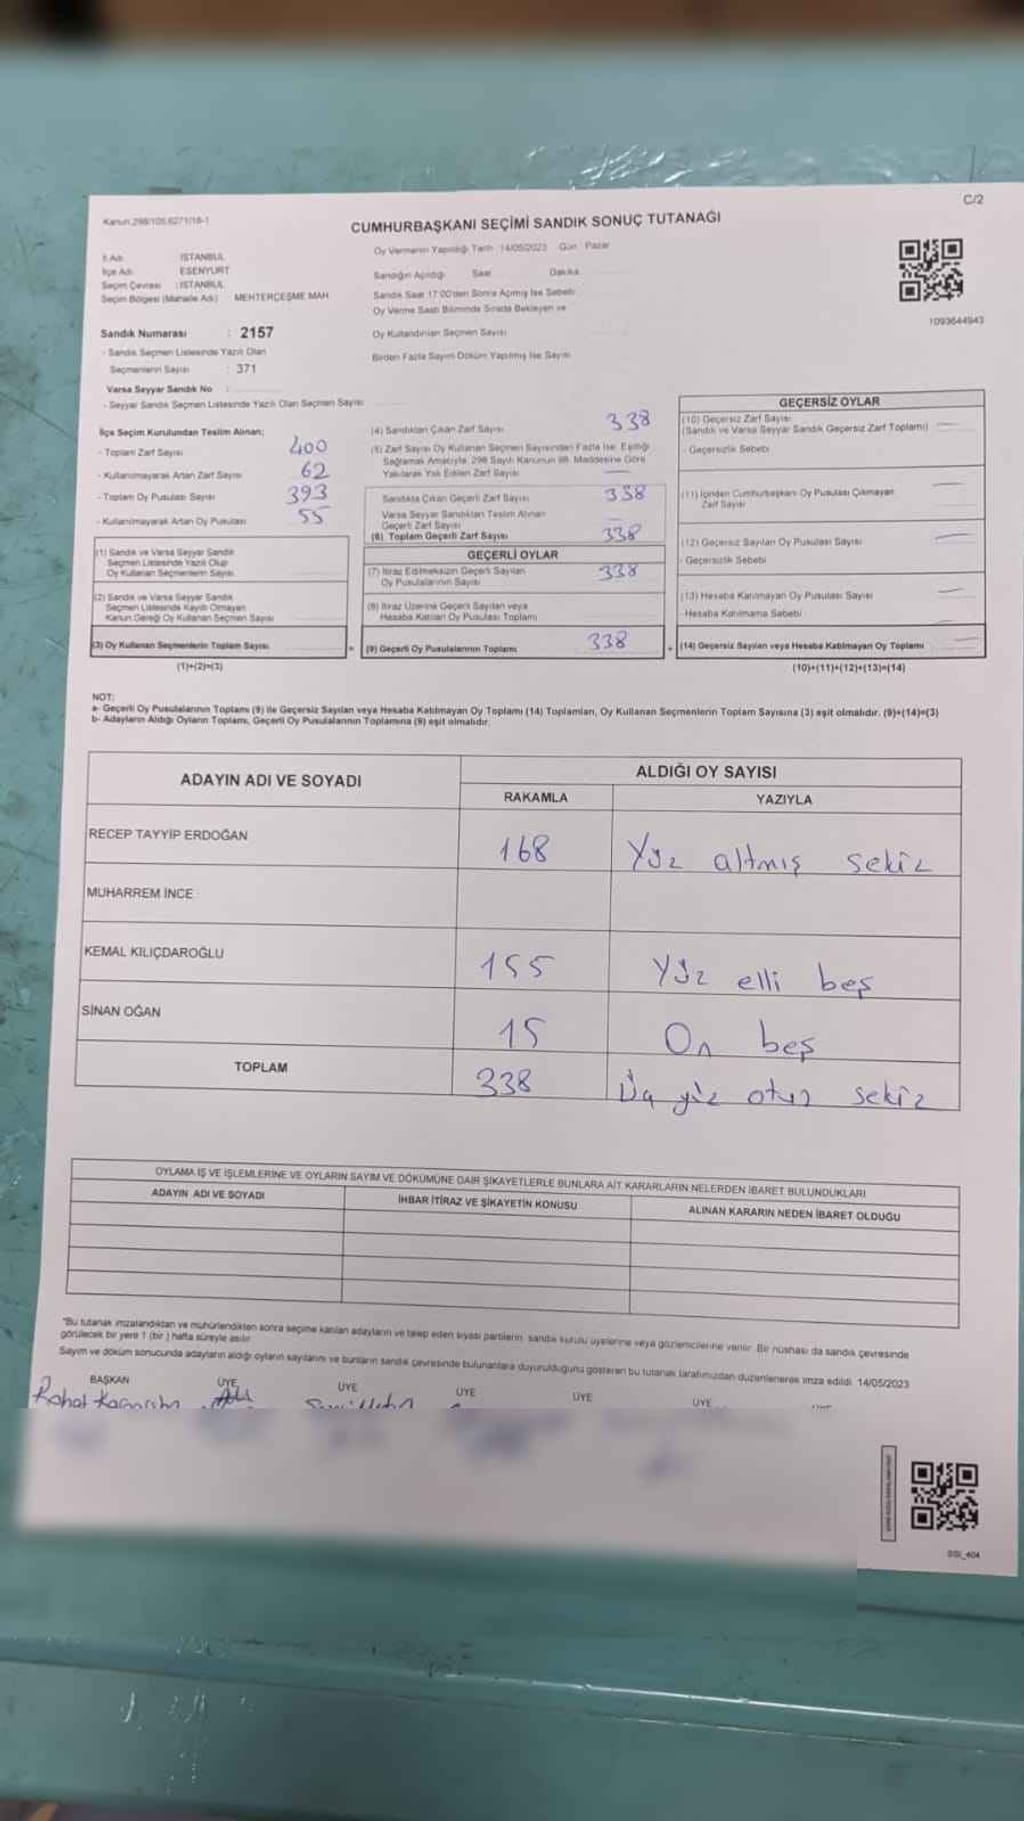 C/2
Kanun:298/105,6271/18-1
CUMHURBAŞKANI SEÇİMİ SANDIK SONUÇ TUTANAĞI
İl Adı : İSTANBUL
İlçe Adı : ESENYURT
Seçim Çevresi : İSTANBUL
Seçim Bölgesi (Mahalle Adı) MEHTERÇEŞME MAH
Sandık Numarası : 2157
- Sandık Seçmen Listesinde Yazılı Olan
Seçmenlerin Sayısı : 371
Varsa Seyyar Sandık No :
- Seyyar Sandık Seçmen Listesinde Yazılı Olan Seçmen Sayısı
Oy Vermenin Yapıldığı Tarih 14/05/2023 Gün Pazar
Sandığın Açıldığı Saat Dakika
Sandık Saat 17:00'den Sonra Açılmış İse Sebebi
Oy Verme Saati Bitiminde Sırada Bekleyen ve
Oy Kullandırılan Seçmen Sayısı
Birden Fazla Sayım Döküm Yapılmış İse Sayısı
1093644943
İlçe Seçim Kurulundan Teslim Alınan;
- Toplam Zarf Sayısı 400
- Kullanılmayarak Artan Zarf Sayısı 62
- Toplam Oy Pusulası Sayısı 393
- Kullanılmayarak Artan Oy Pusulası 55
(1) Sandık ve Varsa Seyyar Sandık
Seçmen Listesinde Yazılı Olup
Oy Kullanan Seçmenlerin Sayısı
(2) Sandık ve Varsa Seyyar Sandık
Seçmen Listesinde Kayıtlı Olmayan
Kanun Gereği Oy Kullanan Seçmen Sayısı
(3) Oy Kullanan Seçmenlerin Toplam Sayısı
(1)+(2)=(3)
(4) Sandıktan Çıkan Zarf Sayısı 338
(5) Zarf Sayısı Oy Kullanan Seçmen Sayısından Fazla İse, Eşitliği
Sağlamak Amacıyla, 298 Sayılı Kanunun 98. Maddesine Göre
Yakılarak Yok Edilen Zarf Sayısı —
Sandıkta Çıkan Geçerli Zarf Sayısı 338
Varsa Seyyar Sandıktan Teslim Alınan
Geçerli Zarf Sayısı —
(6) Toplam Geçerli Zarf Sayısı 338
GEÇERLİ OYLAR
(7) İtiraz Edilmeksizin Geçerli Sayılan
Oy Pusulalarının Sayısı 338
(8) İtiraz Üzerine Geçerli Sayılan veya
Hesaba Katılan Oy Pusulası Toplamı
= (9) Geçerli Oy Pusulalarının Toplamı 338
GEÇERSİZ OYLAR
(10) Geçersiz Zarf Sayısı
(Sandık ve Varsa Seyyar Sandık Geçersiz Zarf Toplamı) —
- Geçersizlik Sebebi
(11) İçinden Cumhurbaşkanı Oy Pusulası Çıkmayan
Zarf Sayısı —
(12) Geçersiz Sayılan Oy Pusulası Sayısı —
- Geçersizlik Sebebi
(13) Hesaba Katılmayan Oy Pusulası Sayısı —
- Hesaba Katılmama Sebebi
+ (14) Geçersiz Sayılan veya Hesaba Katılmayan Oy Toplamı —
(10)+(11)+(12)+(13)=(14)
NOT:
a- Geçerli Oy Pusulalarının Toplamı (9) ile Geçersiz Sayılan veya Hesaba Katılmayan Oy Toplamı (14) Toplamları, Oy Kullanan Seçmenlerin Toplam Sayısına (3) eşit olmalıdır. (9)+(14)=(3)
b- Adayların Aldığı Oyların Toplamı, Geçerli Oy Pusulalarının Toplamına (9) eşit olmalıdır.
ADAYIN ADI VE SOYADI
ALDIĞI OY SAYISI
RAKAMLA YAZIYLA
RECEP TAYYİP ERDOĞAN 168 Yüz altmış sekiz
MUHARREM İNCE
KEMAL KILIÇDAROĞLU 155 Yüz elli beş
SİNAN OĞAN 15 On beş
TOPLAM 338 Üç yüz otuz sekiz
OYLAMA İŞ VE İŞLEMLERİNE VE OYLARIN SAYIM VE DÖKÜMÜNE DAİR ŞİKAYETLERLE BUNLARA AİT KARARLARIN NELERDEN İBARET BULUNDUKLARI
ADAYIN ADI VE SOYADI İHBAR İTİRAZ VE ŞİKAYETİN KONUSU ALINAN KARARIN NEDEN İBARET OLDUĞU
"Bu tutanak imzalandıktan ve mühürlendikten sonra seçime katılan adayların ve talep eden siyasi partilerin sandık kurulu üyelerine veya gözlemcilerine verilir. Bir nüshası da sandık çevresinde
görülecek bir yere 1 (bir ) hafta süreyle asılır.
Sayım ve döküm sonucunda adayların aldığı oyların sayılarını ve bunların sandık çevresinde bulunanlara duyurulduğunu gösteren bu tutanak tarafımızdan düzenlenerek imza edildi. 14/05/2023
BAŞKAN ÜYE ÜYE ÜYE ÜYE ÜYE
SSİ_404